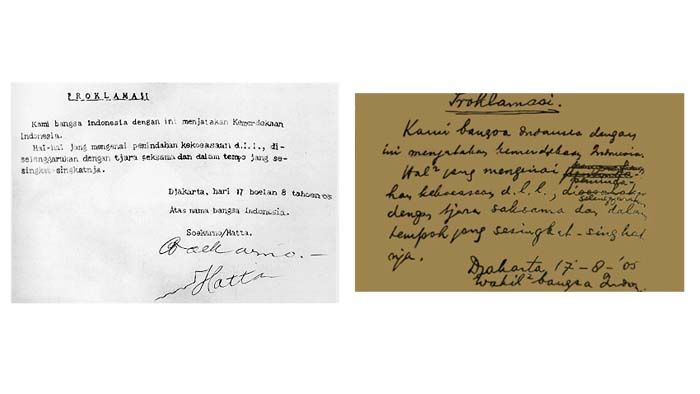 PROKLAMASI
Kami bangsa Indonesia dengan ini menjatakan Kemerdekaan
Indonesia.
Hal-hal jang mengenai pemindahan kekoeasaan d.l.l., di-
selenggarakan dengan tjara seksama dan dalam tempo jang se-
singkat-singkatnja.
Djakarta, hari 17 boelan 8 tahoen 05
Atas nama bangsa Indonesia.
Soekarno/Hatta.
Soekarno.
Hatta
Proklamasi.
Kami bangsa Indonesia dengan
ini menjatakan kemerdekaan Indonesia.
Hal² jang mengenai
kan kekoeasaan d.l.l.,
selenggarakan
dengan tjara saksama dan dalam
tempoh jang sesingkat-singkat
nja.
Djakarta, 17-8-'05
Wakil² bangsa Indon.